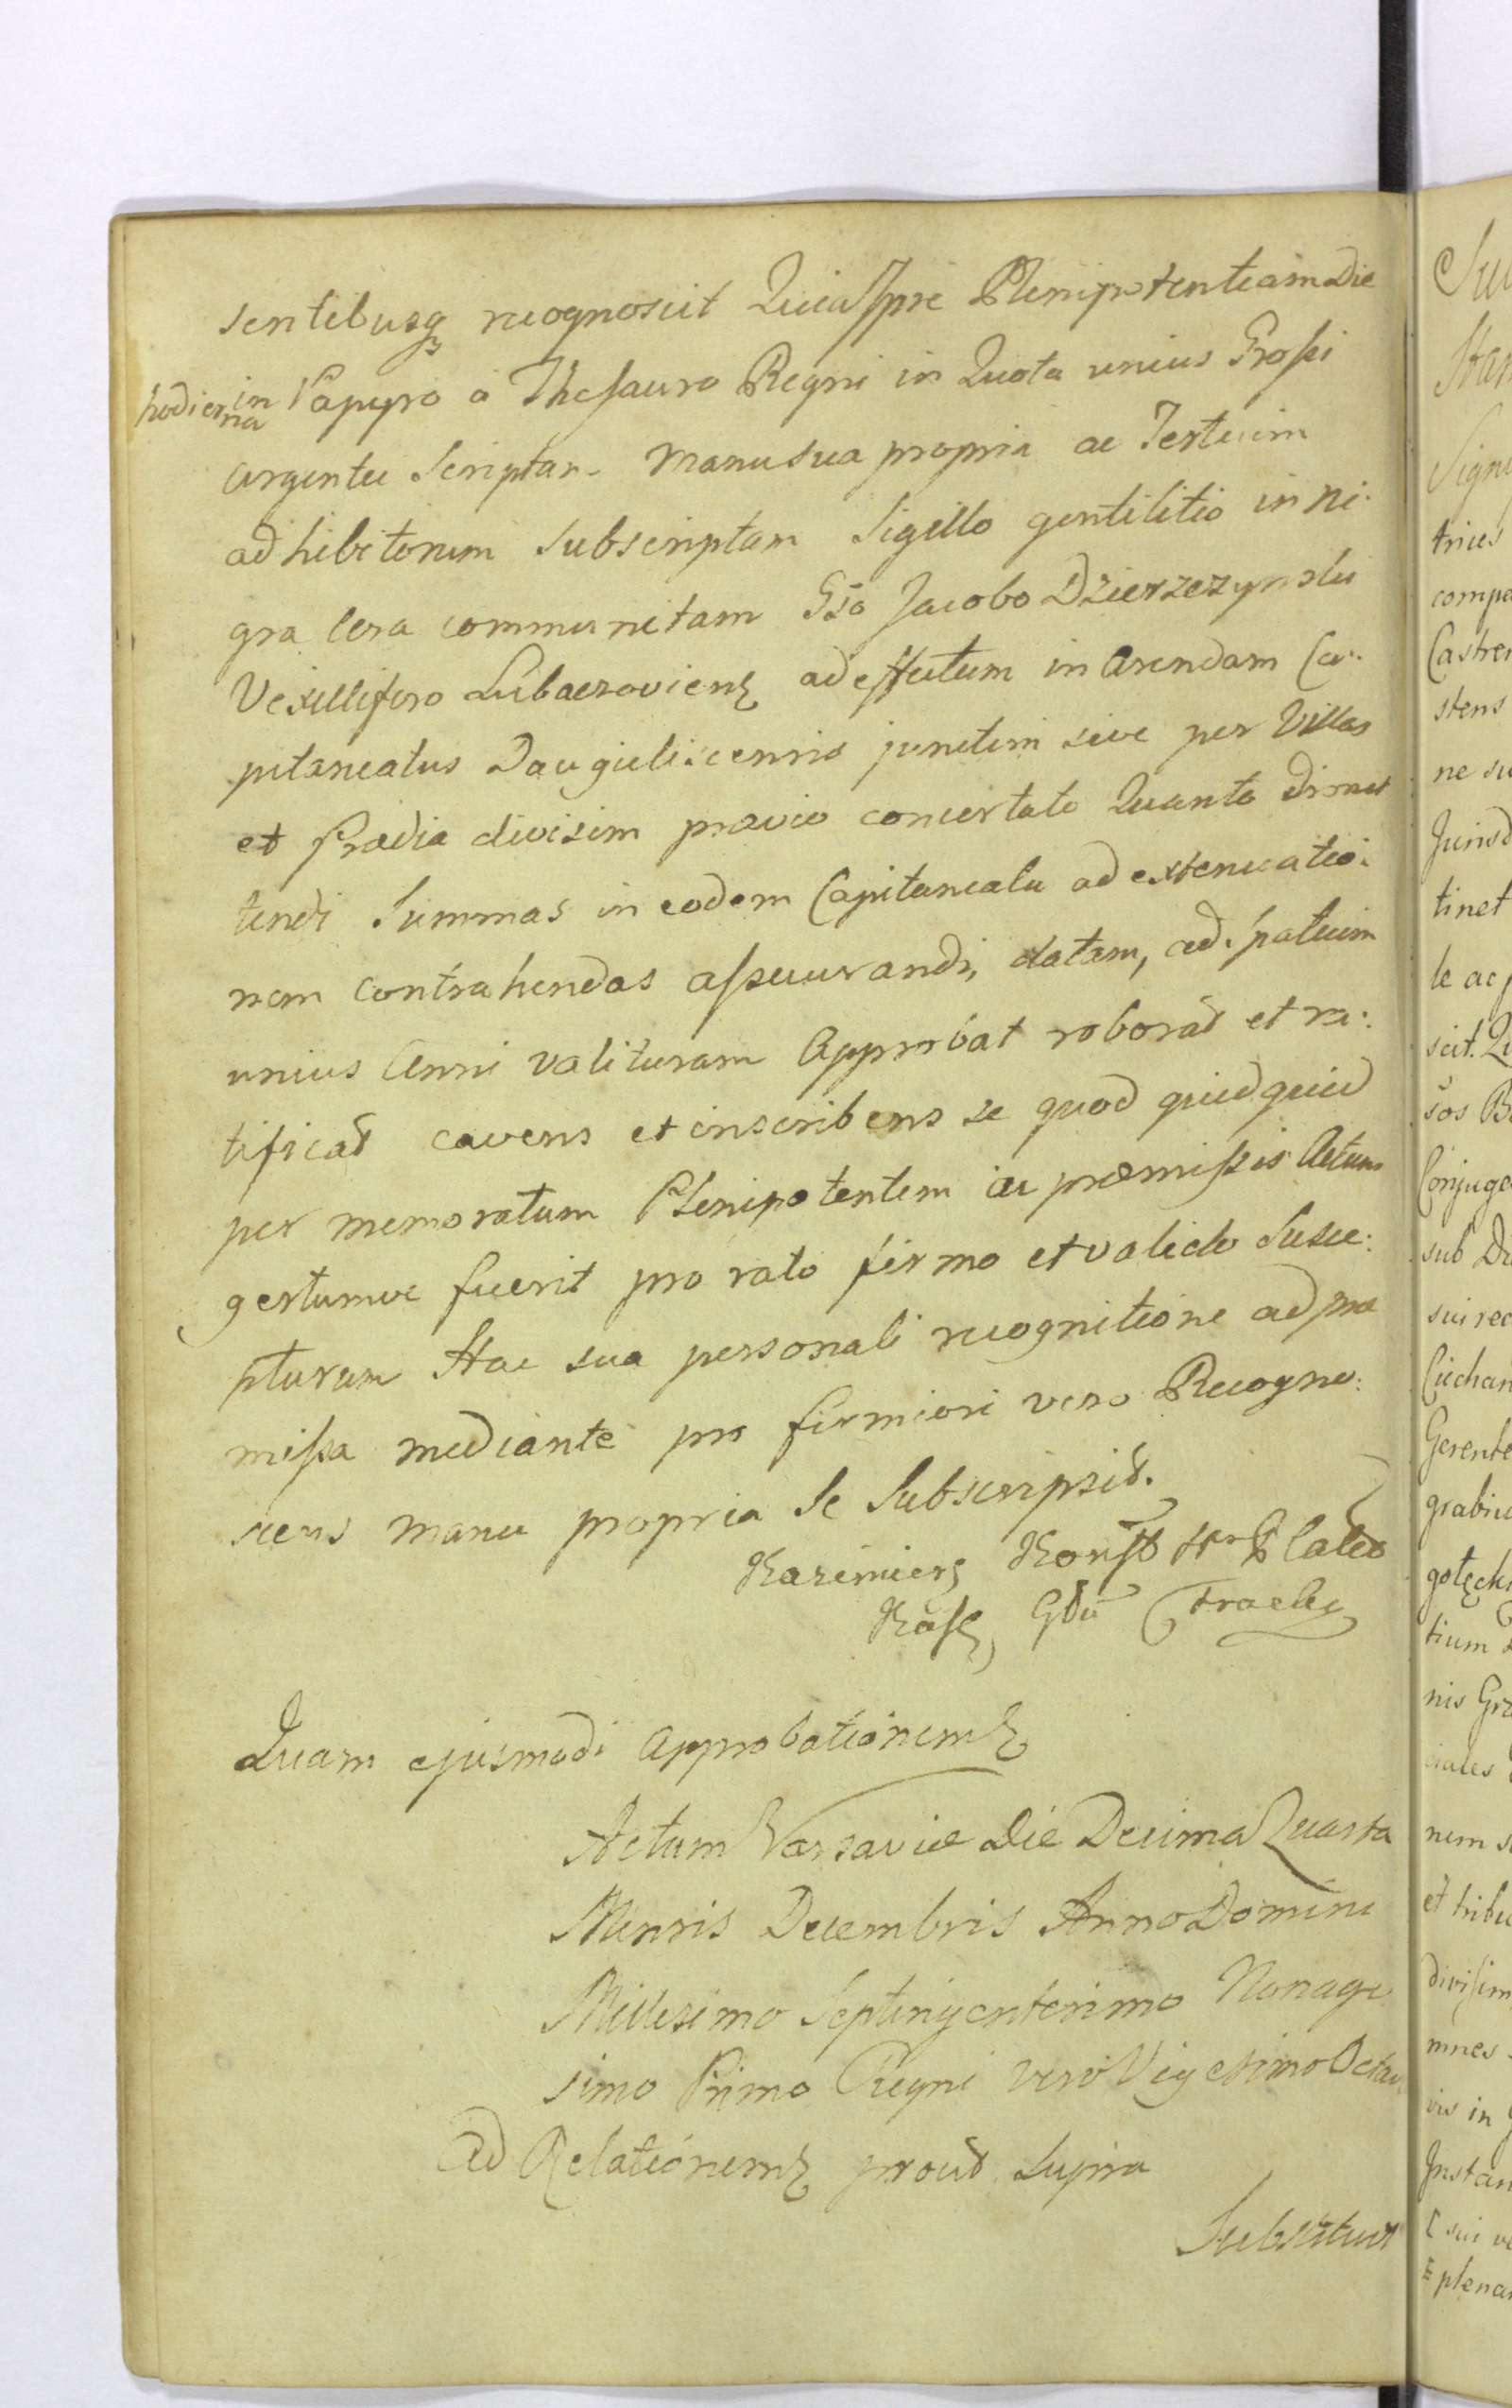 sentibusq recognoscit Quia Ipse Plenipotentiam Die
hodierna in Papyro a Thesauro Regni in Quota unius Grossi
argentei Scriptam Manu sua propria ac Testium
adhibitorum Subscriptam Sigillo gentilitio in ni:
gra cera communitam Gso Jacobo Dzierzczynski
Vexillifero Lubaczoviens ad effectum in Arendam Ca:
pitaneatus Daugieliscensis junctim sive per Villas
et Prædia divisim prævio concertato Quanto dimit
tendi Summas in eodem Capitaneatu ad extenuatio:
nem contrahendas assecurandi, datam, ad spatium
unius Anni valituram Approbat roborat et ra:
tificat cavens et inscribens se quod quidquid
per memoratum Plenipotentem in præmissis Actum
gestumve fuerit pro rato firmo et valido Susce:
pturum Hac sua personali recognitione ad præ
missa mediante pro firmiori vero Recogno:
scens manu propria Se Subscripsit.
Kazimierz Konst Hr Plater
Kasz,
Quam ejusmodi Approbationem
Actum Varsaviæ Die Decima Quarta
Mensis Decembris Anno Domini
Millesimo Septingentesimo Nonage
simo Primo Regni vero Vigesimo Octav
Ad Relationem prout Supra
Substituit
Su
Stan
Signi
trices
compa
Castren
stens
ne su
Jurisd
tinet
le ac
scit. Qu
Conjuga
sub Di
sui rec
Ciechan
Gerente
grabie
gołęcki
tium
nis Gra
nem s
et tribu
divisim
mnes
vis in
Instan
sui ve
plenar